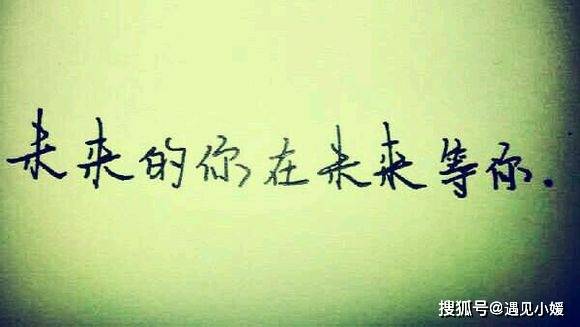 未来的你,在未来等你.
搜狐号@遇见小媛